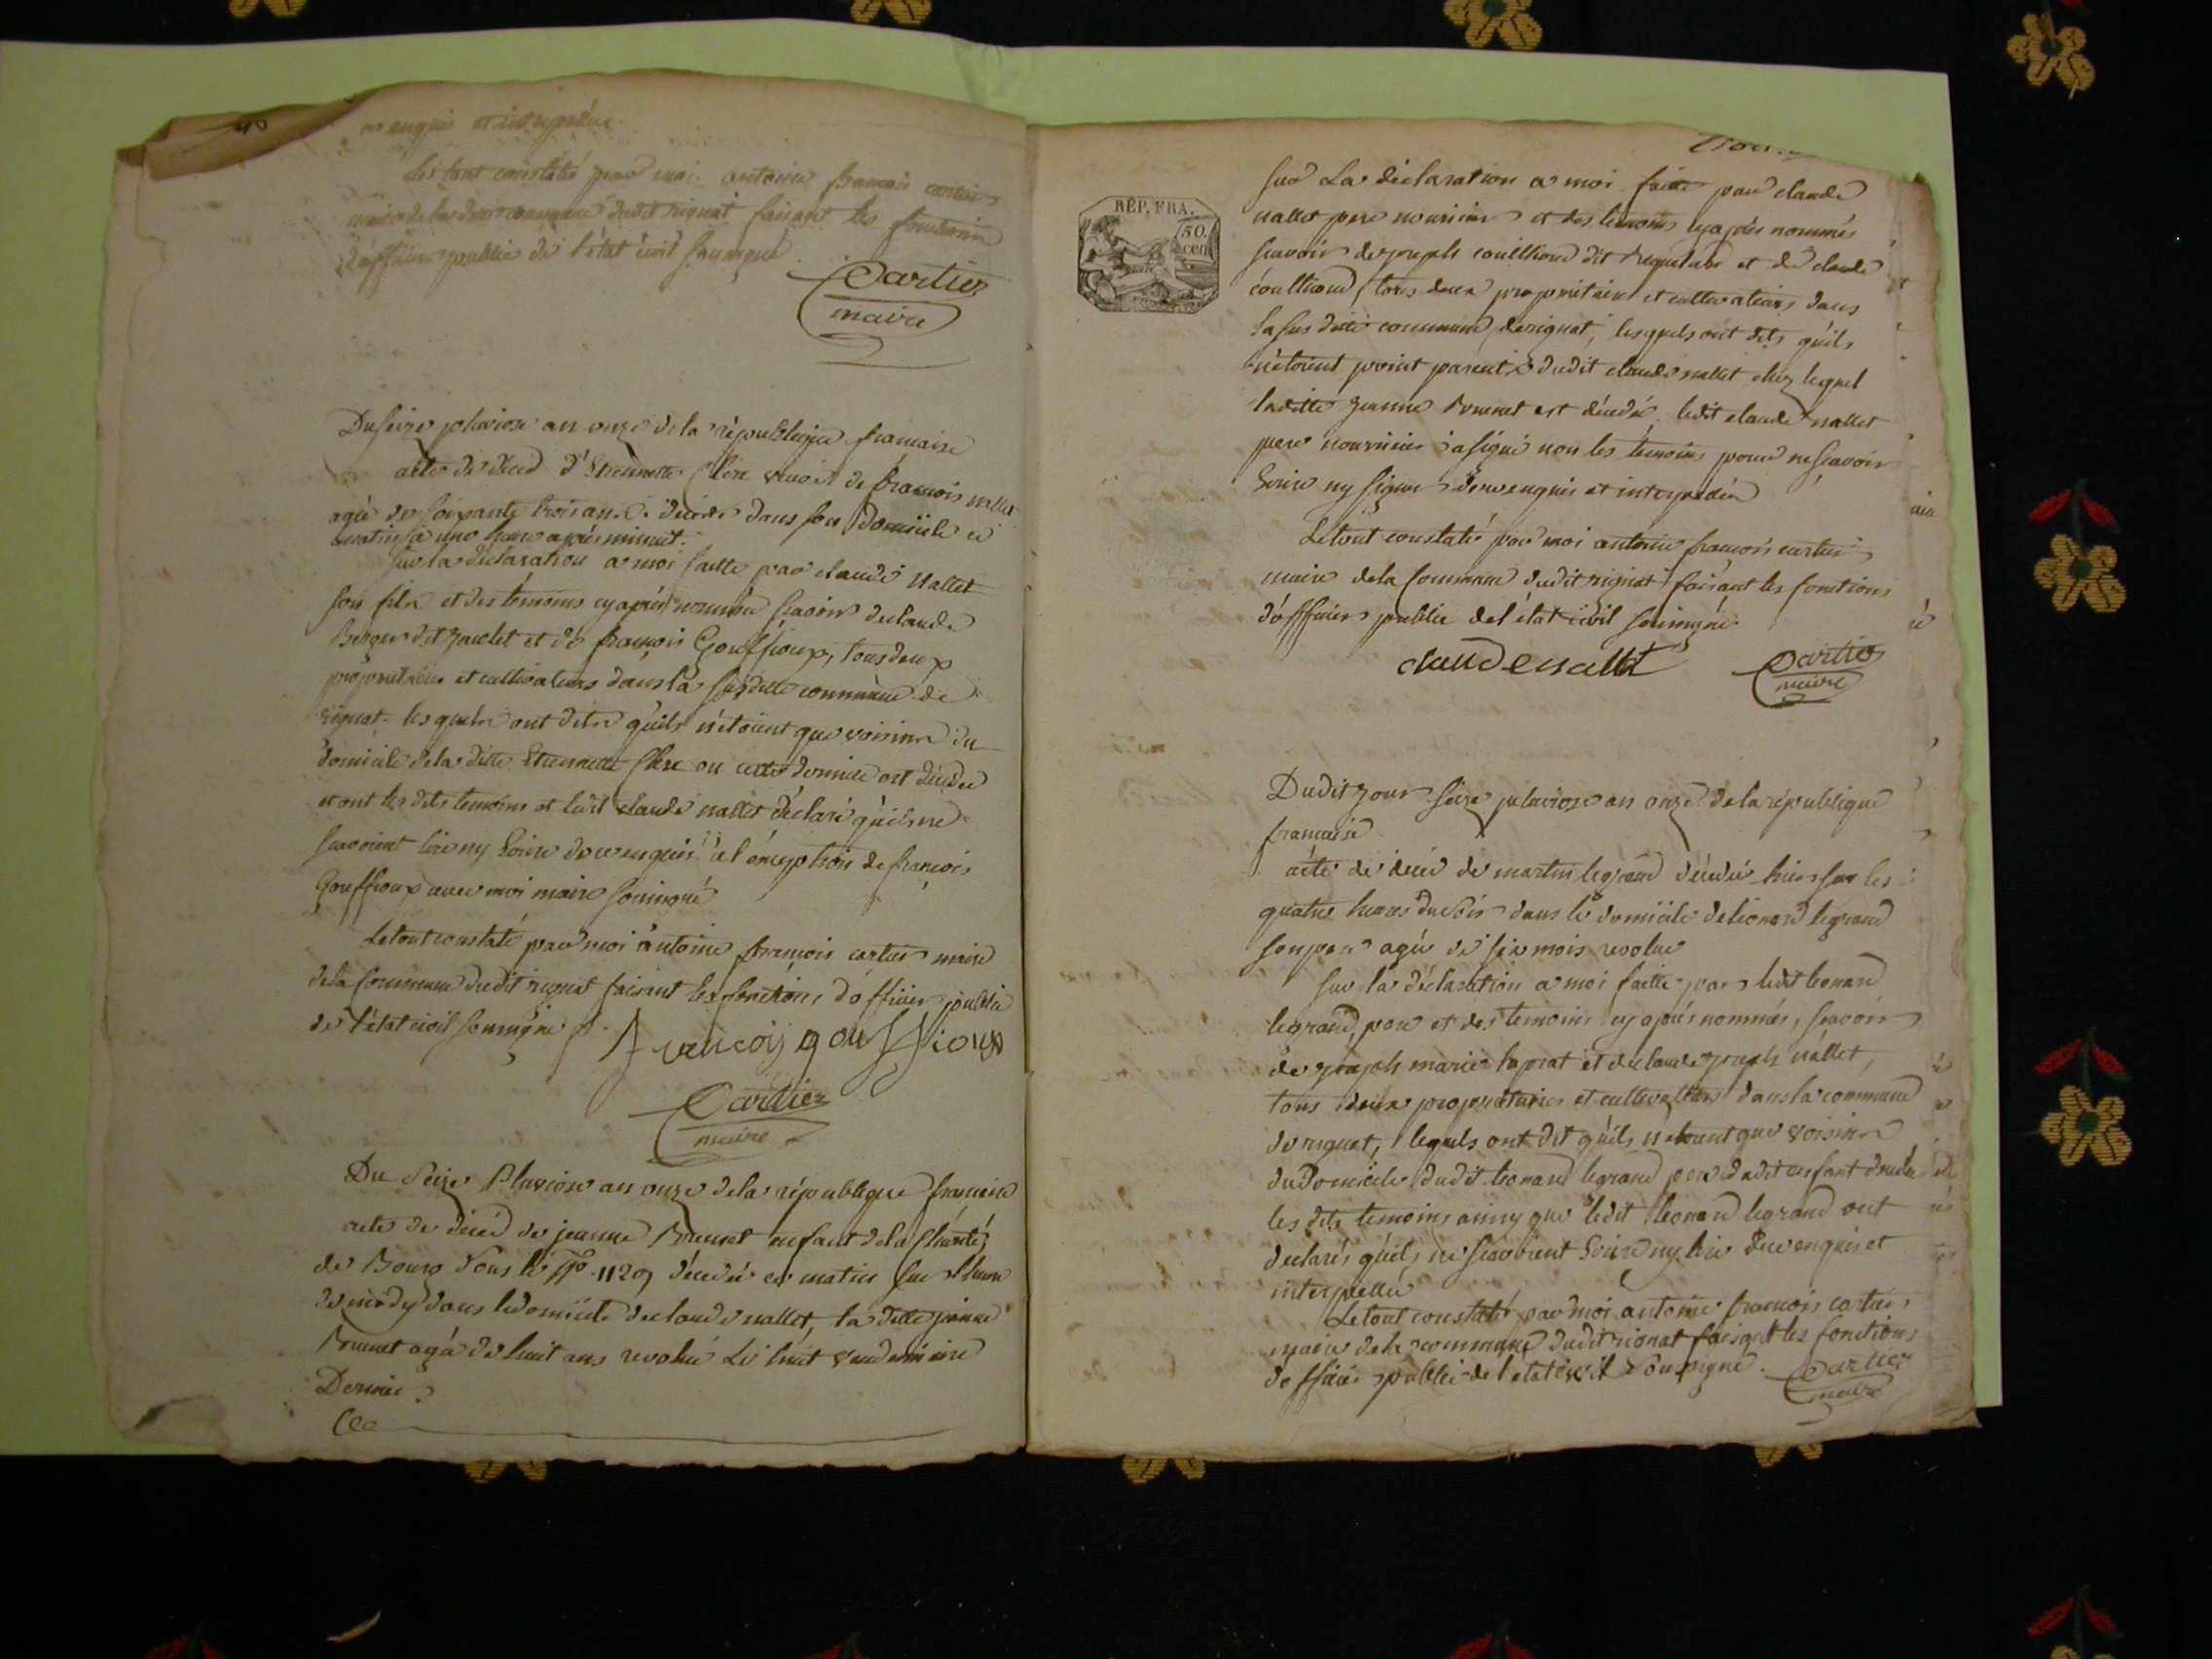 enquis et interpellés
Le tout constaté par moi antoine françois cartier
maire de la ditte commune dudit rignat faisant les fonctions
d'officier public de l'état civil soussigné
Cartier
maire
Du seize pluviose an onze de la république française
acte de décéd d'Etiennette Clerc veuve de françois nallet
agée de soixante trois ans décédée dans son domicile ce
matin à une heure après minuit.
sur la déclaration a moi faitte par claude Nallet
son fils et des témoins cy après nommés scavoir de claude
Berger dit jaclet et de françois Gouffioux, tous deux
propriétaires et cultivateurs dans la susditte commune de
rignat. lesquels ont dits qu'ils n'etoient que voisins du
domicile de la ditte Etiennette Clerc ou cette dernière est décédée
et ont les dits temoins et ledit claude nallet déclaré qu'ils ne
scavoient lire ny Ecrire de ce enquis à l'éxception de françois
Gouffioux avec moi maire soussigné
Le tout constaté par moi antoine françois cartier maire
de la Commune dudit rignat faisant les fonctions d'officier public
de l'état civil soussigné
francois gouffioux
Cartier
maire
Du Seize Pluviose an onze de la république française
acte de décéd de jeanne Brunet enfant de la Charité
de Bourg sous le No. 1129 décédée ce matin sur l'heure
de midy dans le domicile de claude nallet, la ditte jeanne
Brunet agée de huit ans revolus Le huit vendemiaire
Dernier.
REP. FRA.
50.
cen
sur La déclaration a moi faitte par claude
nallet pere nourricier et des temoins cy après nommés
scavoir de joseph couilloud dit et de claude
couilloud, tous deux propriétaires et cultivateurs dans
la sus ditte commune de rignat, lesquels ont dits qu'ils
n'étoient point parents dudit claude nallet chez lequel
laditte jeanne Brunet est décédée. ledit claude nallet
pere nourricier a signé non les temoins pour ne scavoir
Ecrire ny signer de ce enquis et interpellés
Le tout constaté par moi antoine françois cartier
maire de la Commune dudit rignat faisant les fonctions
d'officier public de l'état civil soussigné.
claude nallet
Cartier
maire
Dudit jour seize pluviose an onze de la république
française
acte de décéd de martin legrand décédé hier sur les
quatre heures du soir dans le domicile de léonard legrand
son pere agé de six mois revolus
sur la déclaration a moi faitte par ledit leonard
legrand pere et des temoins cy après nommés, scavoir
de joseph marie laprat et de claude joseph nallet,
tous deux propriétaires et cultivateurs dans la commune
de rignat, lequels ont dit qu'ils n'etoient que voisins
du Domicile dudit leonard legrand pere dudit enfant
les dits temoins ainsy que ledit leonard legrand ont
declarés qu'ils ne scavoient Ecrire ny lire de ce enquis et
interpellés
Le tout constaté par moi antoine françois cartier
maire de la commune dudit rignat faisant les fonctions
d'officier public de l'etat civil soussigné.
Cartier
maire